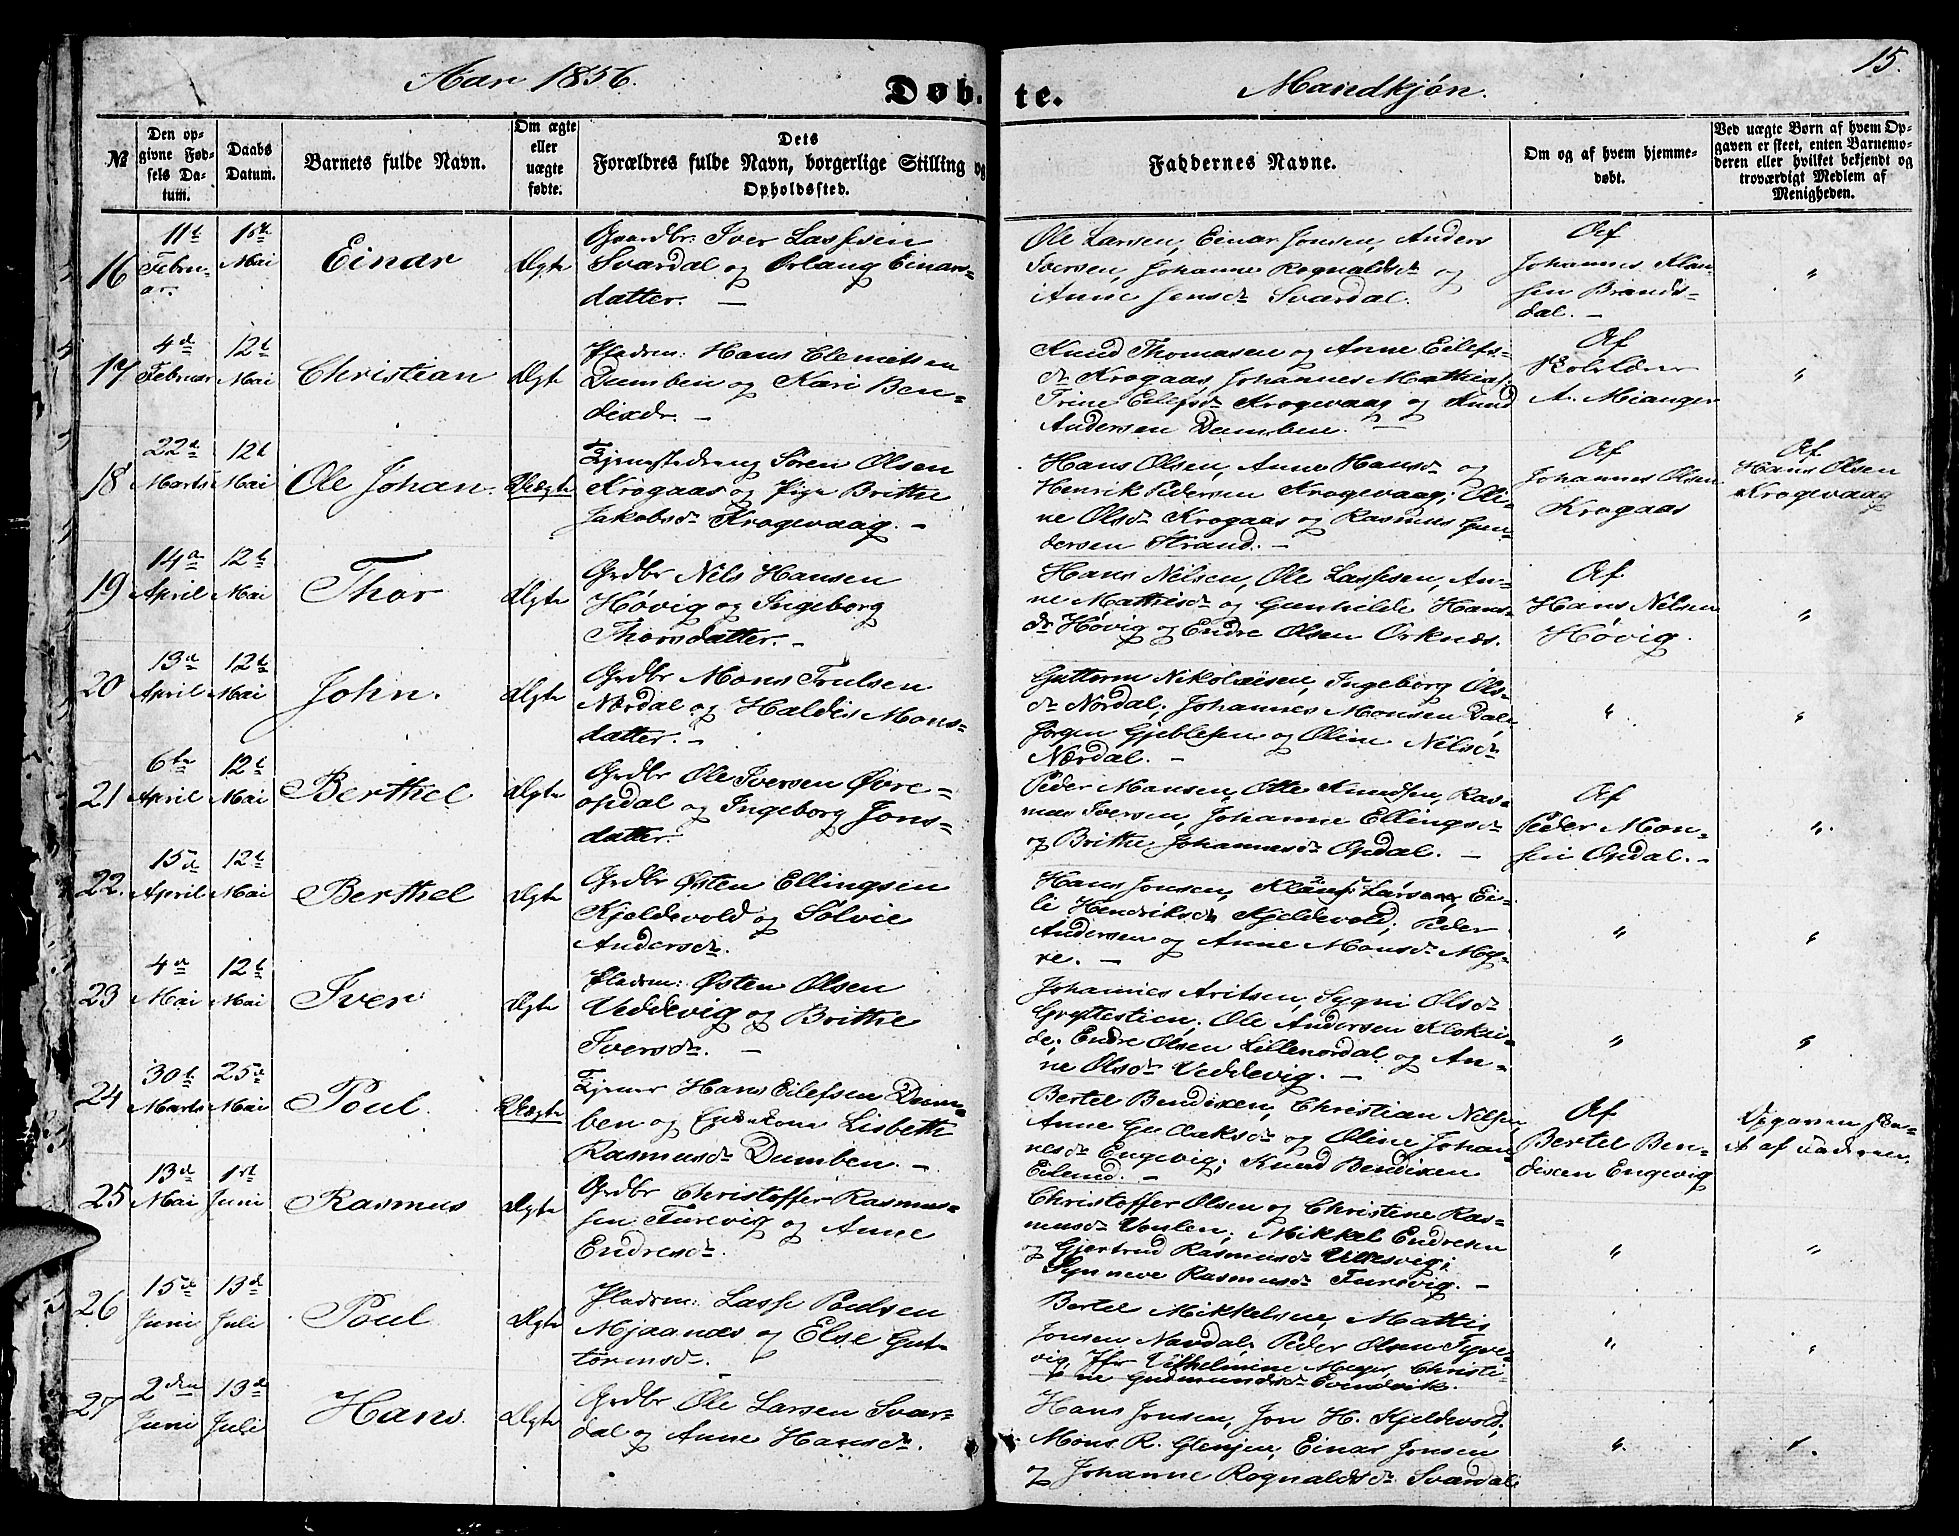 15.
Aar 1856.
Døb-te.
Mandkjøn.
№
Den opgivne Fødsels Datum.
Daabs Datum.
Barnets fulde Navn.
Om ægte eller uægte fødte.
Dets Forældres fulde Navn, borgerlige Stilling og Opholdssted.
Faddernes Navne.
Om og af hvem hjemmedøbt.
Ved uægte Børn af hvem Opgaven er skeet, enten Barnemoderen eller hvilket bekjendt og troværdigt Medlem af Menigheden.
16
11t Februar.
1st Mai
Einar
Ægte
Gaardbr: Iver Lassesen
Svardal og Ørlaug Einars-
datter. —
Ole Larsen, Einar Jonsen, Anders
Iversen, Johanne Rognaldsdr og
Anne Jensdr Svardal.
Af
Johannes
sen Brands-
dal. —
"
17
4de Februar
12t Mai
Christian
Ægte
Pladsm: Hans Clemetsen
Dumben og Kari Ben-
dixdr. —
Knud Thomasen og Anne Eilefs-
dr Krogaas, Johannes Mathias.
Trine Eilefsdr Krogevaag og Knud
Andersen Dumben. —
Af
A. Mianger
"
18
22d Marts
12t Mai
Ole Johan.
Uægte
Tjenestedreng Søren Olsen
Krogaas og Pige Brithe
Jakobsdr Krogevaag. —
Hans Olsen, Anne Hansdr og
Henrik Pedersen Krogevaag; Oli-
ne Olsdr Krogaas og Rasmus Gun-
dersen Strand. —
Af
Johannes Olsen
Krogaas
Af
Hans Olsen
Krogevaag
19
14d April
12t Mai
Thor
Ægte
Grdbr Nils Hansen
Høvig og Ingeborg
Thorsdatter. —
Hans Nilsen, Ole Lassesen, An-
ne Mathisdr og Gunhilde Hans-
dr Høvig og Endre Olsen Orknæs.
Af
Hans Nilsen
Høvig.
"
20
13d April
12t Mai
John.
Ægte
Grdbr Mons Trulsen
Nærdal og Haldis Mons-
datter. —
Guttorm Nikolaisen, Ingeborg Ols-
dr Nordal; Johannes Monsen Dal,
Jørgen Gjeblesen og Oline Nilsdr
Nærdal. —
"
"
21
6te April
12t Mai
Berthel
Ægte
Grdbr Ole Iversen Øvre-
opdal og Ingeborg Jons-
datter.
Peder Monsen, Otte Knudsen, Ras-
mus Iversen, Johanne Ellingsdr
og Brithe Johannesdr Opdal. —
Af
Peder Mon-
sen Opdal. —
".
22.
15d April
12t Mai
Berthel
Ægte
Grdbr Østen Ellingsen
Kjeldevold og Sølvie
Andersdr.
Hans Jonsen, Larsen, Ei-
li Hendriksdr Kjeldevold; Peder
Andersen og Anne Monsdr My-
re. —
"
"
23
4d Mai
12t Mai
Iver
Ægte
Pladsm: Østen Olsen
Veddevig og Brithe
Iversdr. —
Johannes Aritsen, Sygni Olsdr
Grytestien; Ole Andersen Klokei-
de; Endre Olsen Lillenordal og An-
ne Olsdr Veddevig. —
"
"
24
30t Marts
25de Mai
Poul.
Uægte
Tjener Hans Eilefsen Dum-
ben og Enkekone Lisbeth
Rasmusdr Dumben. —
Bertel Bendixen, Christian Nilsen,
Anne Gu dr og Oline Johan-
nesdr Engevig; Knud Bendixen
Eilund. —
Af
Bertel Ben-
dixen Engevig
Opgaven ske-
t af Faderen.
25
13d Mai
1st Juni
Rasmus
Ægte
Grdbr Christoffer Rasmus-
sen Turevig og Anne
Endresdr.
Christoffer Olsen og Christine Ras-
musdr Voulen; Mikkel Endresen
og Gjertrud Rasmusdr Ullesvig;
Synneve Rasmusdr Turevig. —
"
"
26
15de Juni
13d Juli
Poul
Ægte
Pladsm: Lasse Poulsen
Mjaanæs og Else Gut-
tormsdr.
Bertel Mikkelsen, Mattis
Jonsen Nordal; Peder Olsen Tyve-
vig, Jfr Vilhelmine Meyer, Christi-
ne Gudmundsdr Evindvik.
"
"
27
2den Juni
13d Juli
Hans.
Ægte
Grdbr Ole Larsen Svar-
dal og Anne Hansdr.
Hans Jonsen, Jon H. Kjeldevold;
Mons R. Glenjen; Einar Jonsen
og Johanne Rognaldsdr Svardal
".
".